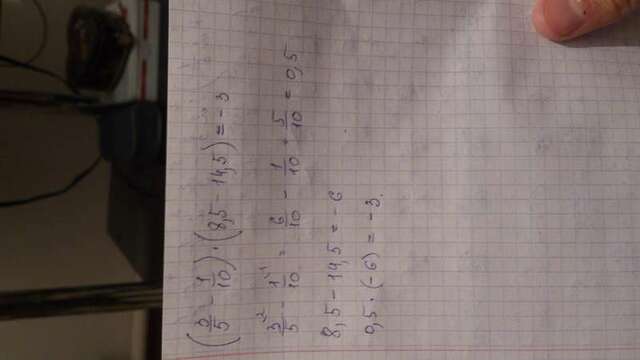 (3/5 - 1/10) · (8,5 - 14,5) = -3
3²/5 - 1¹/10 = 6/10 - 1/10 = 5/10 = 0,5
8,5 - 14,5 = -6
0,5 · (-6) = -3.